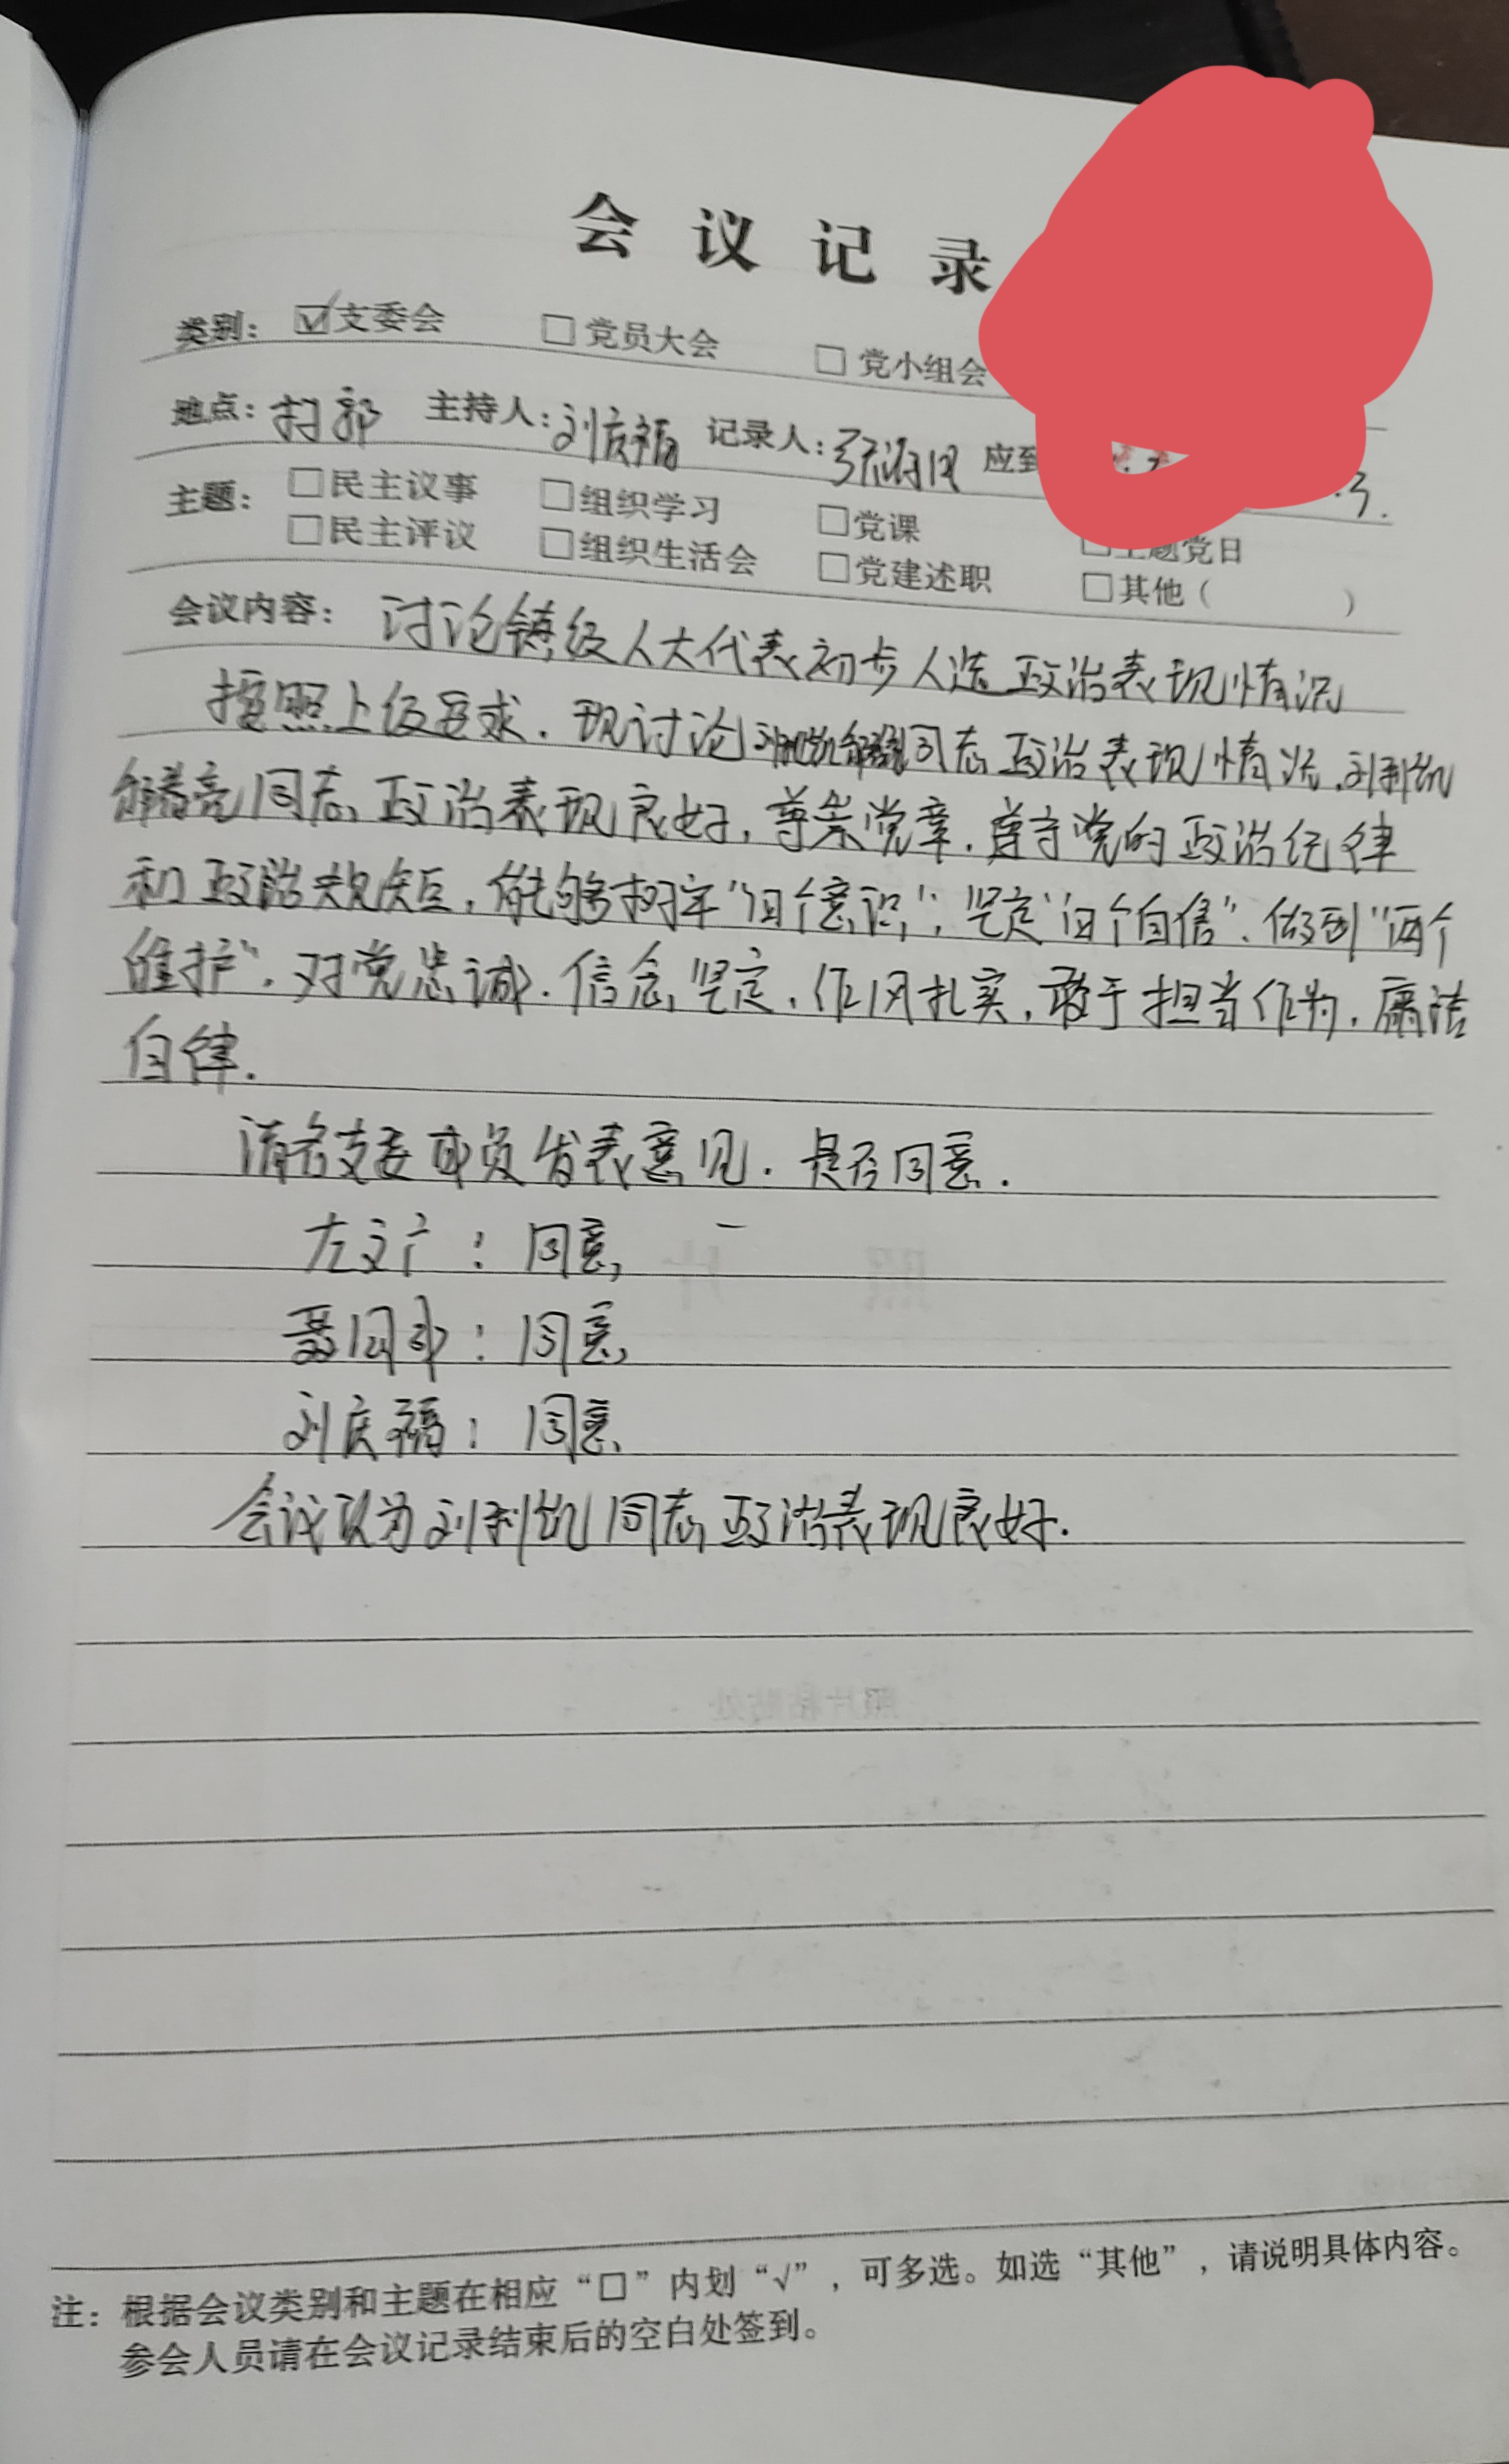 会议记录
类别： ☑支委会 □党员大会 □党小组会
地点： 主持人：刘庆福 记录人： 应到
主题： □民主议事 □组织学习 □党课 □主题党日
□民主评议 □组织生活会 □党建述职 □其他（ ）
会议内容： 讨论镇级人大代表初步人选政治表现情况
按照上级要求，现讨论 同志政治表现情况，刘利凯
同志政治表现良好，尊崇党章，遵守党的政治纪律
和政治规矩，能够树牢"四个意识"，坚定"四个自信"，做到"两个
维护"，对党忠诚，信念坚定，作风扎实，敢于担当作为，廉洁
自律.
请各支委成员发表意见，是否同意.
左文广：同意
：同意
刘庆福：同意
会议认为刘利凯同志政治表现良好.
注：根据会议类别和主题在相应“□”内划“√”，可多选。如选“其他”，请说明具体内容。
参会人员请在会议记录结束后的空白处签到。